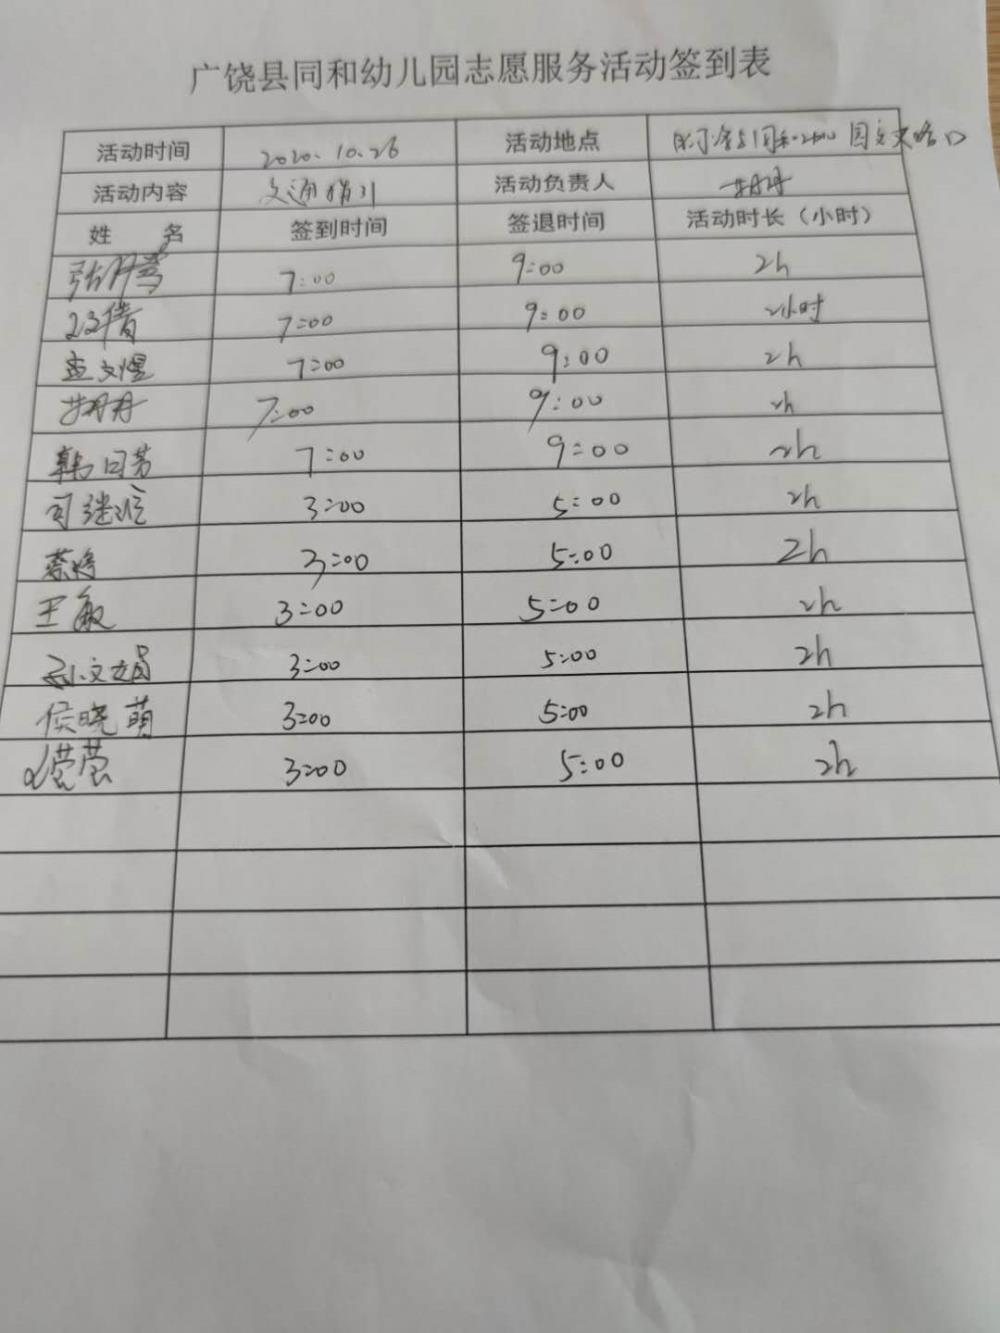 广饶县同和幼儿园志愿服务活动签到表
活动时间 2020.10.26 活动地点
活动内容 交通指引 活动负责人
姓 名 签到时间 签退时间 活动时长（小时）
7:00 9:00 2h
7:00 9:00 2小时
孟文煜 7:00 9:00 2h
7:00 9:00 2h
韩日芳 7:00 9:00 2h
司继 3:00 5:00 2h
蔡 3:00 5:00 2h
王敏 3:00 5:00 2h
孙文娟 3:00 5:00 2h
侯晓萌 3:00 5:00 2h
莹莹 3:00 5:00 2h